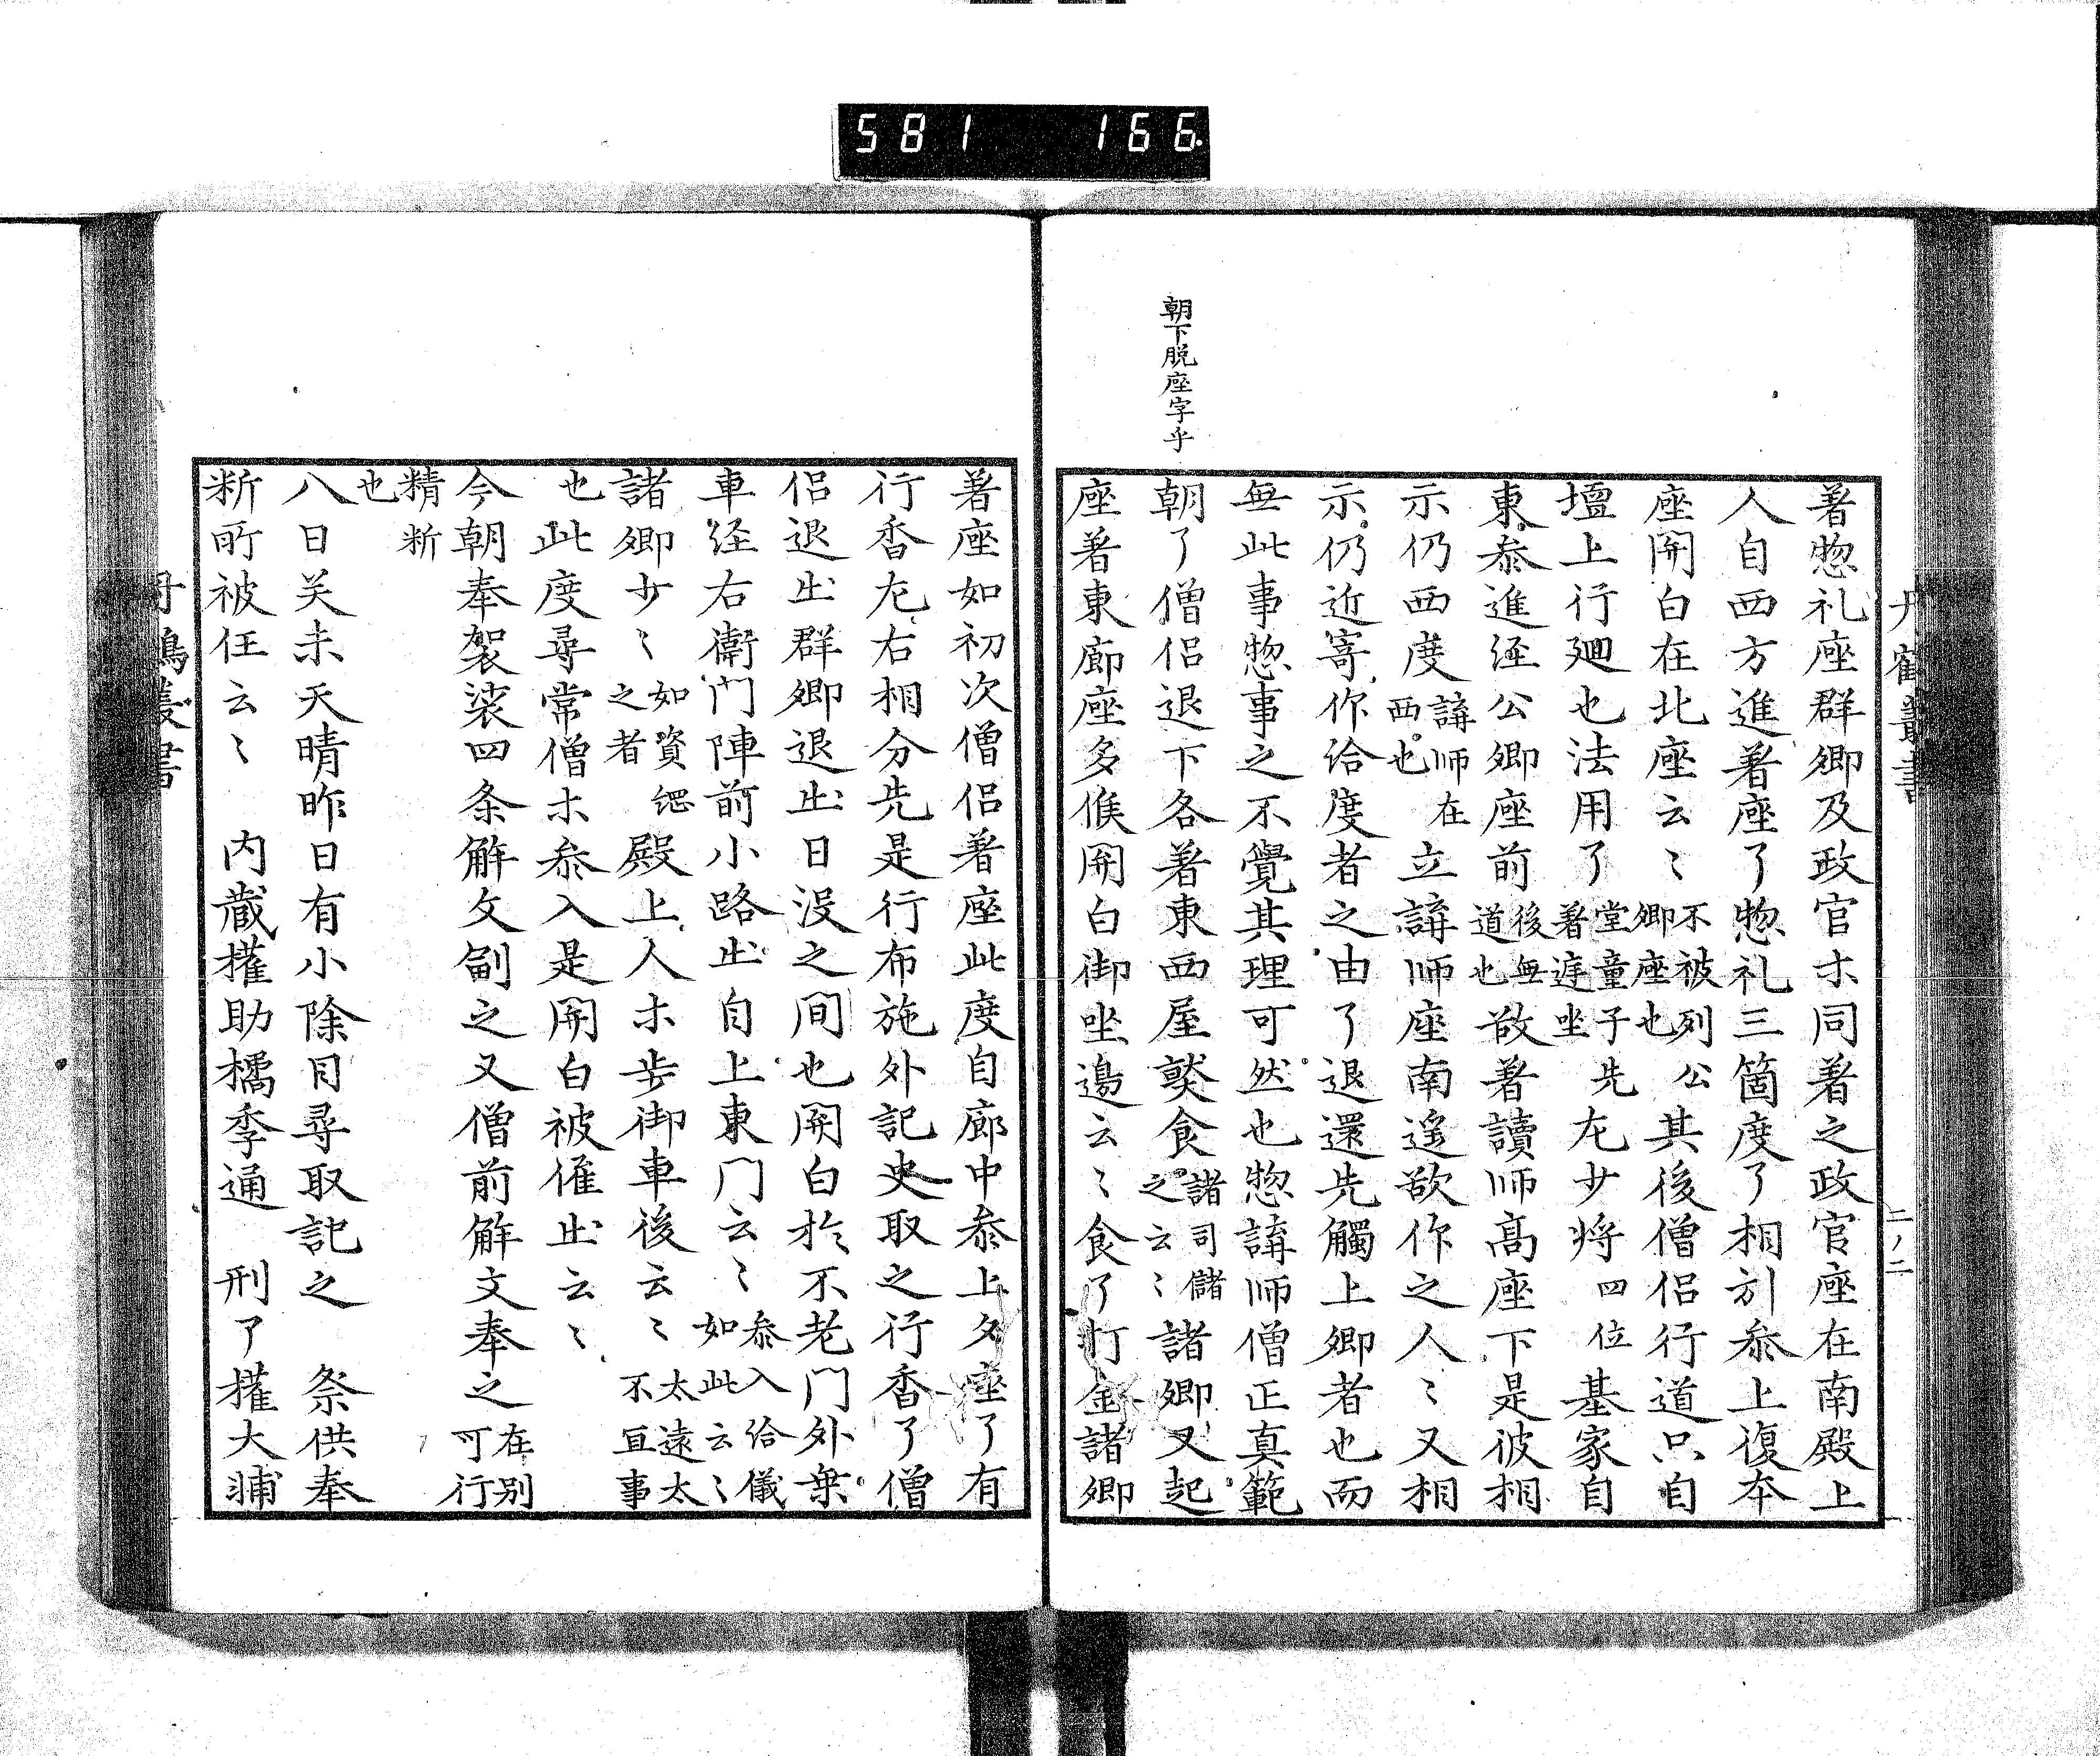 581 166
丹鶴叢書
二ノ二
朝下脱座字乎
著惣礼座群卿及政官ホ同著之政官座在南殿上
人自西方進著座了惣礼三箇度了相引参上復本
座関白在北座云々不被列公卿座也其後僧侶行道只自
壇上行廻也法用了堂童子先著遅坐左少将四位基家自
東参進経公卿座前後無道也敬著讀師高座下是彼相
示仍西度講師在西也立講師座南遥欲作之人々又相
示仍近寄作给度者之由了退還先觸上卿者也而
無此事惣事之不覺其理可然也惣講師僧正真範
朝了僧侶退下各著東西屋䬸食諸司儲之云々諸卿又起
座著東廊座多候関白御坐邊云々食了打金諸卿
著座如初次僧侶著座此度自廊中参上夕座了有
行香左右相分先是行布施外記史取之行香了僧
侶退出群卿退出日没之間也関白於不老門外乗
車経右衛門陣前小路出自上東門云々参入给儀如此云々
諸卿少々如資䚮之者殿上人ホ歩御車後云々太遠太不宜事
也此度尋常僧ホ参入是関白被催出云々
今朝奉袈裟四条解文副之又僧前解文奉之在别可行
精断也
八日关未天晴昨日有小除目尋取記之 祭供奉
断所被任云々 内蔵權助橘季通 刑了權大輔
丹鶴叢書